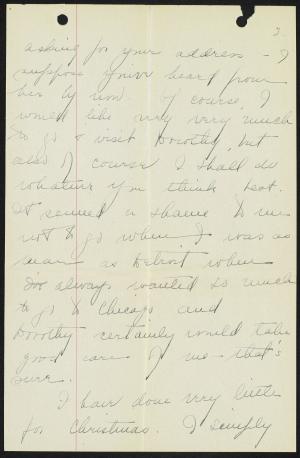 2.
asking for your address - I
suppose you've heard from
her by now. Of course, I
would like very very much
to go & visit Dorothy, but
also of course I shall do
whatever you think best.
It seemed a shame to me
not to go when I was as
near as Detroit when
I've always wanted so much
to go to Chicago and
Dorothy certainly would take
good care of me - that's
sure.
I have done very little
for Christmas. I simply